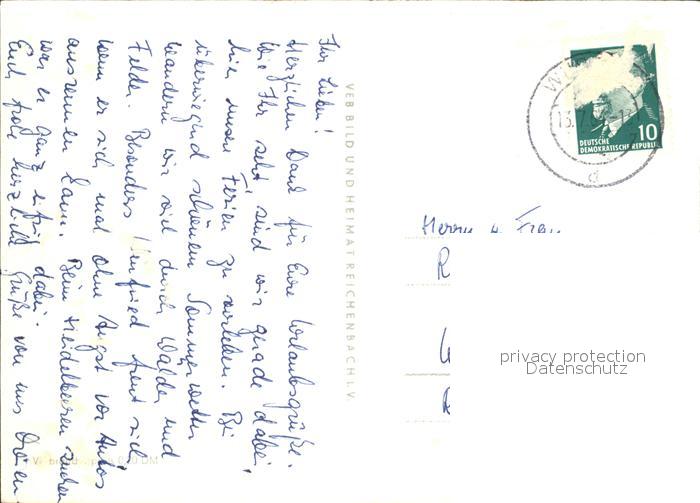 Ihr Lieben!
Herzlichen Dank für Eure Urlaubsgrüße.
Wie Ihr seht sind wir gerade dabei,
hier unsere Ferien zu verleben. Bei
überwiegend schönem Sommerwetter
wandern wir viel durch Wälder und
Felder. Besonders freut sich
wenn er sich mal ohne Angst vor Autos
ausrennen kann. Beim Heidelbeeren suchen
war er ganz eifrig dabei.
Euch recht herzliche Grüße von uns Dreien
VEB BILD UND HEIMAT REICHENBACH I. V.
10
DEUTSCHE
DEMOKRATISCHE REPUBLIK
d
Herrn u. Frau
R
privacy protection
Datenschutz